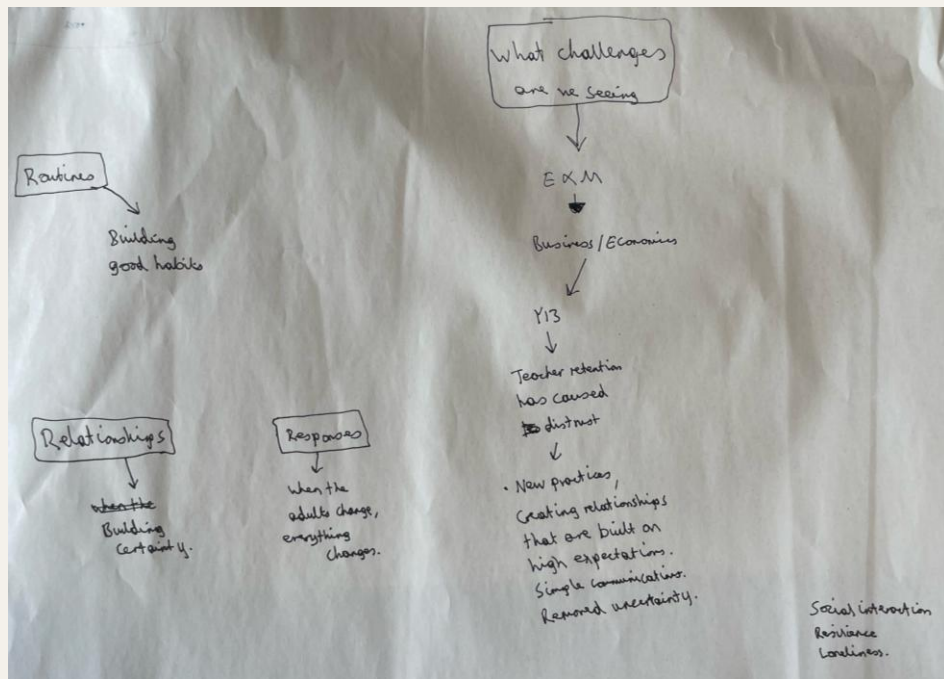 What challenges
are we seeing
E & M
Business / Economics
Y13
Teacher retention
has caused
distrust
• New practices,
Creating relationships
that are built on
high expectations.
Simple communication.
Removed uncertainty.
Routines
Building
good habits
Relationships
when the
Building
Certainty.
Responses
when the
adults change,
everything
changes.
Social interaction
Resilience
Loneliness.